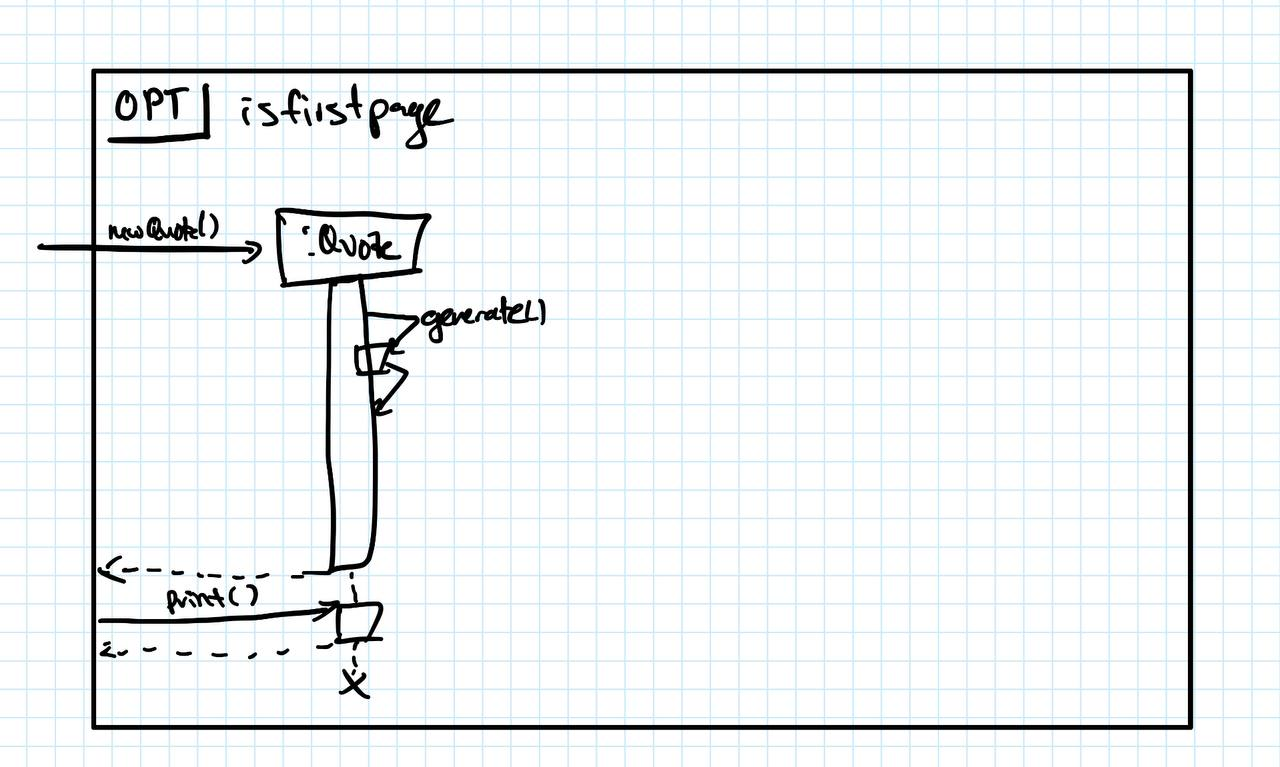 OPT isfirstpage
newQuote()
:Quote
generate()
print()
X